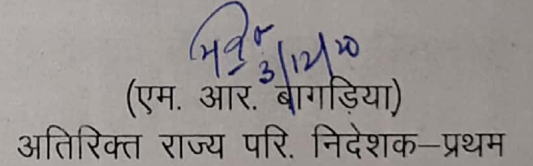 3/12/20
(एम. आर. बागड़िया)
अतिरिक्त राज्य परि. निदेशक–प्रथम